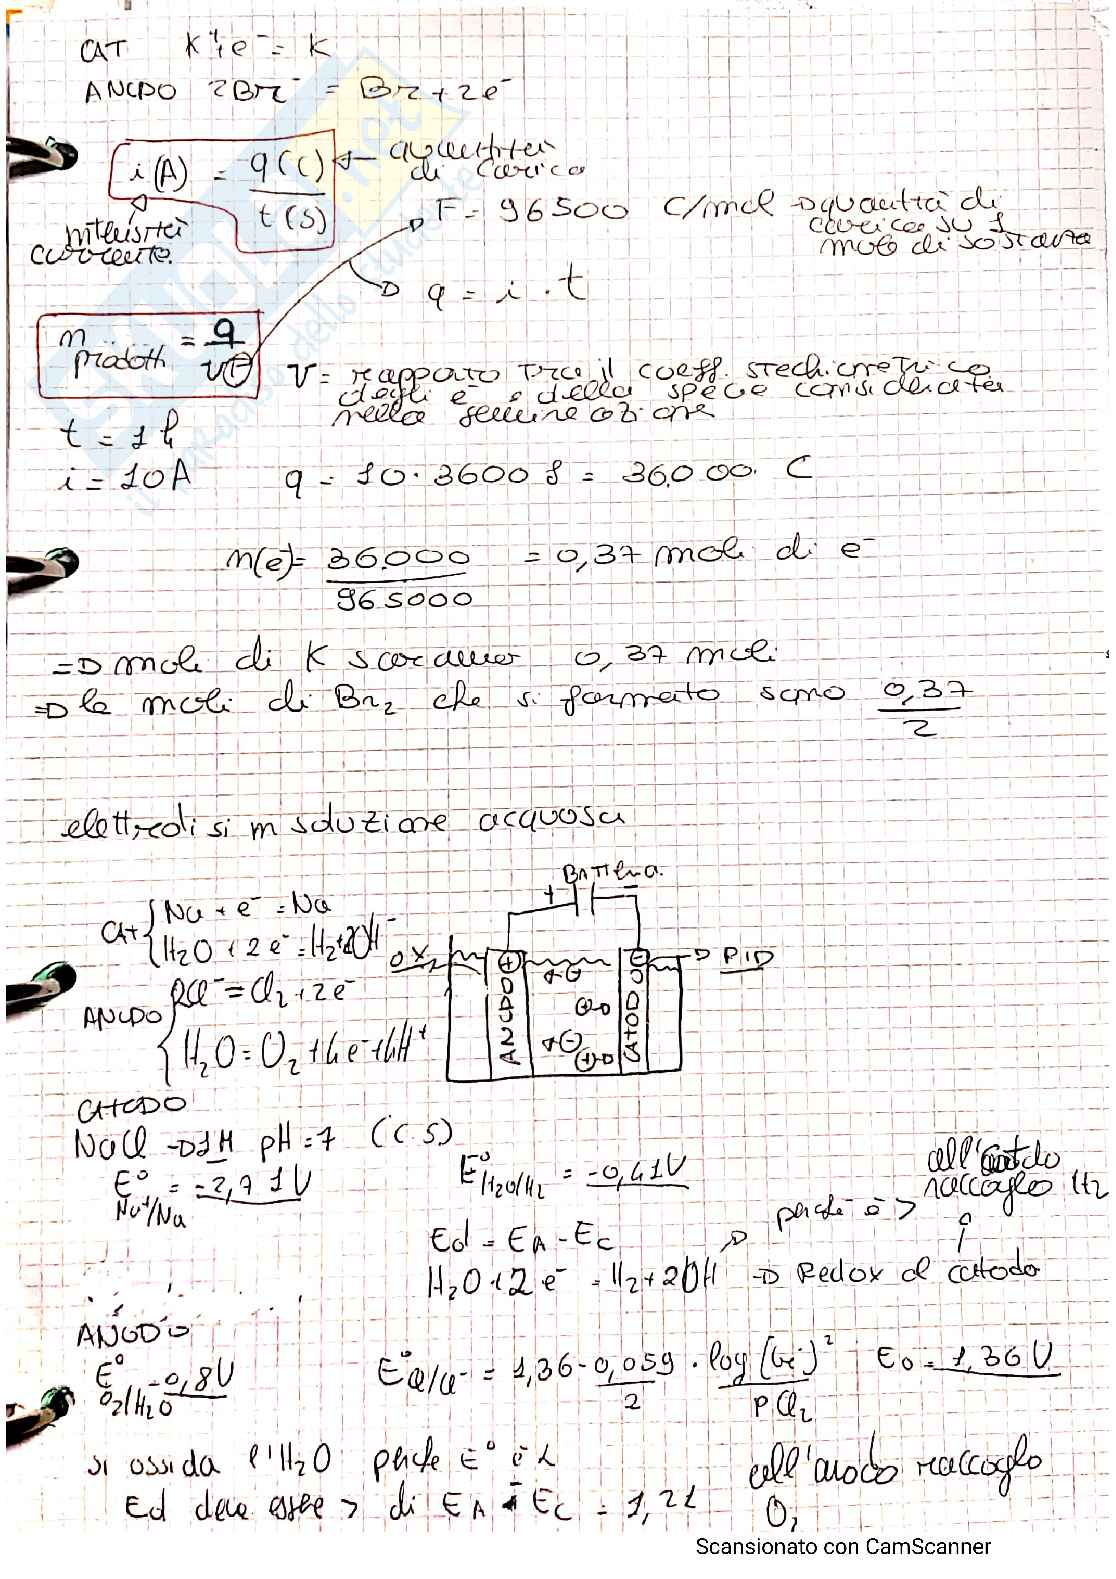 CAT K⁺+e⁻ = K
ANODO 2Br⁻ = Br + 2e⁻
i(A) = q(C) / t(s) ← quantità di carica
intensità corrente.
F = 96500 C/mol → quantità di carica su 1 mole di sostanza
q = i · t
n prodotti = q / νF
ν = rapporto tra il coeff. stechiometrico
degli e⁻ e della specie considerata
nella semireazione
t = 1 h
i = 10A q = 10 · 3600 s = 36000 C
n(e⁻) = 36.000 / 965000 = 0,37 moli di e⁻
⇒ moli di K saranno 0,37 moli
⇒ le moli di Br₂ che si formato sono 0,37 / 2
elettrolisi in soluzione acquosa
Batteria
+ −
CAT { Na + e⁻ = Na
H₂O + 2e⁻ = H₂ + 2OH⁻
OX
RID
ANODO { 2Cl⁻ = Cl₂ + 2e⁻
H₂O = O₂ + 4e⁻ + 4H⁺
ANODO
CATODO
CATODO
NaCl → 1M pH = 7 (C.S)
E° Na⁺/Na = -2,71V
E° H₂O/H₂ = -0,41V
all'catodo raccolgo H₂
perché è >
Ed = EA - EC
H₂O + 2e⁻ = H₂ + 2OH → Redox al catodo
ANODO
E° O₂/H₂O = 0,8V
E° Cl/Cl⁻ = 1,36 - 0,059 / 2 · log (Cl⁻)² / PCl₂ E0 = 1,36V
si ossida l'H₂O perché E° è <
all'anodo raccolgo O₂
Ed deve essere > di EA - EC = 1,21
Scansionato con CamScanner